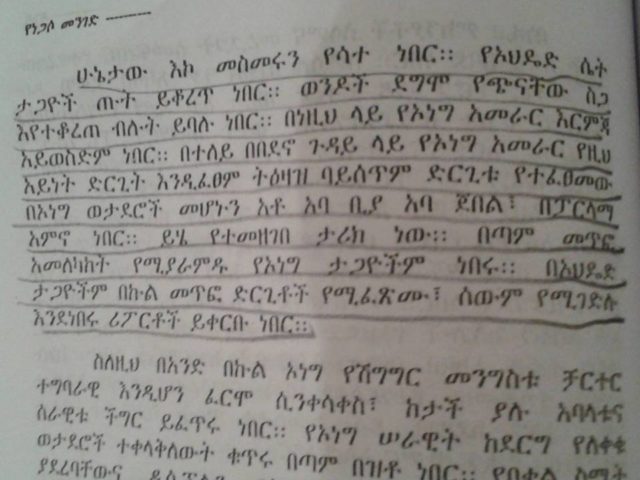 የነጋሶ መንገድ
ሁኔታው እኮ መስመሩን የሳተ ነበር። የኦህዴድ ሴት
ታጋዮች ጡት ይቆረጥ ነበር። ወንዶች ደግሞ የጭናቸው ስጋ
እየተቆረጠ ብሉት ይባሉ ነበር። በነዚህ ላይ የኦነግ አመራር እርምጃ
አይወስድም ነበር። በተለይ በበደኖ ጉዳይ ላይ የኦነግ አመራር የዚህ
አይነት ድርጊት እንዲፈፀም ትዕዛዝ ባይሰጥም ድርጊቱ የተፈፀመው
በኦነግ ወታደሮች መሆኑን አቶ አባ ቢያ አባ ጆበል፣ በፓርላማ
አምኖ ነበር። ይሄ የተመዘገበ ታሪክ ነው። በጣም መጥፎ
አመለካከት የሚያራምዱ የኦነግ ታጋዮችም ነበሩ። በኦህዴድ
ታጋዮችም በኩል መጥፎ ድርጊቶች የሚፈጽሙ፣ ሰውም የሚገድሉ
እንደነበሩ ሪፖርቶች ይቀርቡ ነበር።
ስለዚህ በአንድ በኩል ኦነግ የሽግግር መንግስቱ ቻርተር
ተግባራዊ እንዲሆን ፈርሞ ሲንቀሳቀስ፣ ከታች ያሉ አባላቱና
ሰራዊቱ ችግር ይፈጥሩ ነበር። የኦነግ ሠራዊት ከደርግ የለቀቁ
ወታደሮች ተቀላቅለውት ቁጥሩ በጣም በዝቶ ነበር። የበቀል ስሜት
ያደረባቸውና